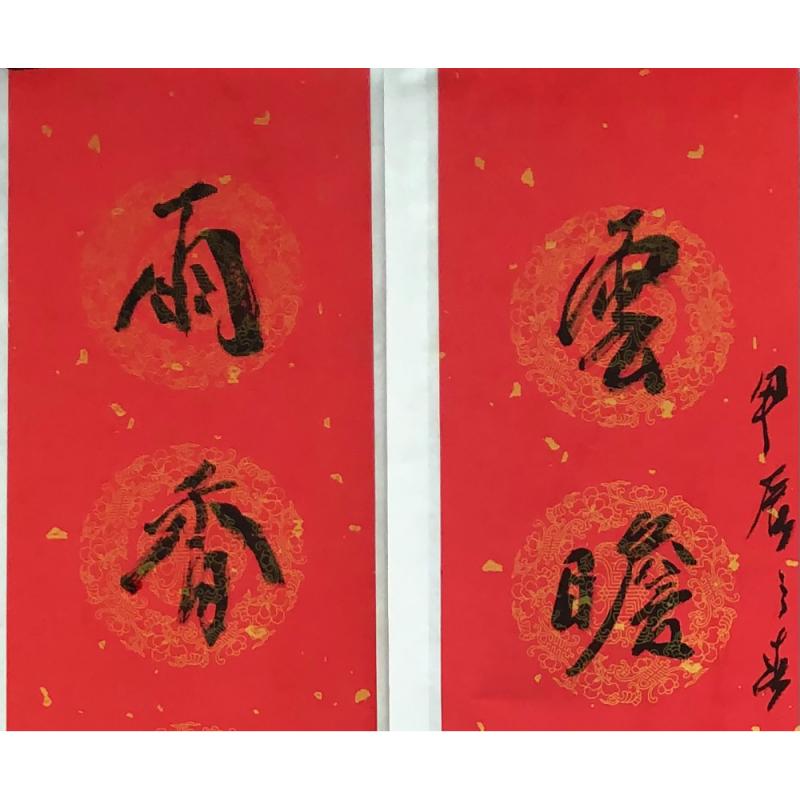 甲辰之春
雲瞻
雨香